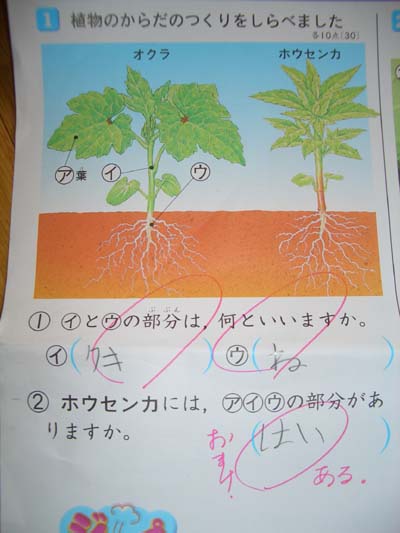 1 植物のからだのつくりをしらべました
各10点(30)
オクラ
ホウセンカ
ア葉
イ
ウ
① イとウの部分は,何といいますか。
ぶぶん
イ(くき) ウ(ね)
② ホウセンカには,アイウの部分があ
りますか。
(はい)
おまけ!
ある。